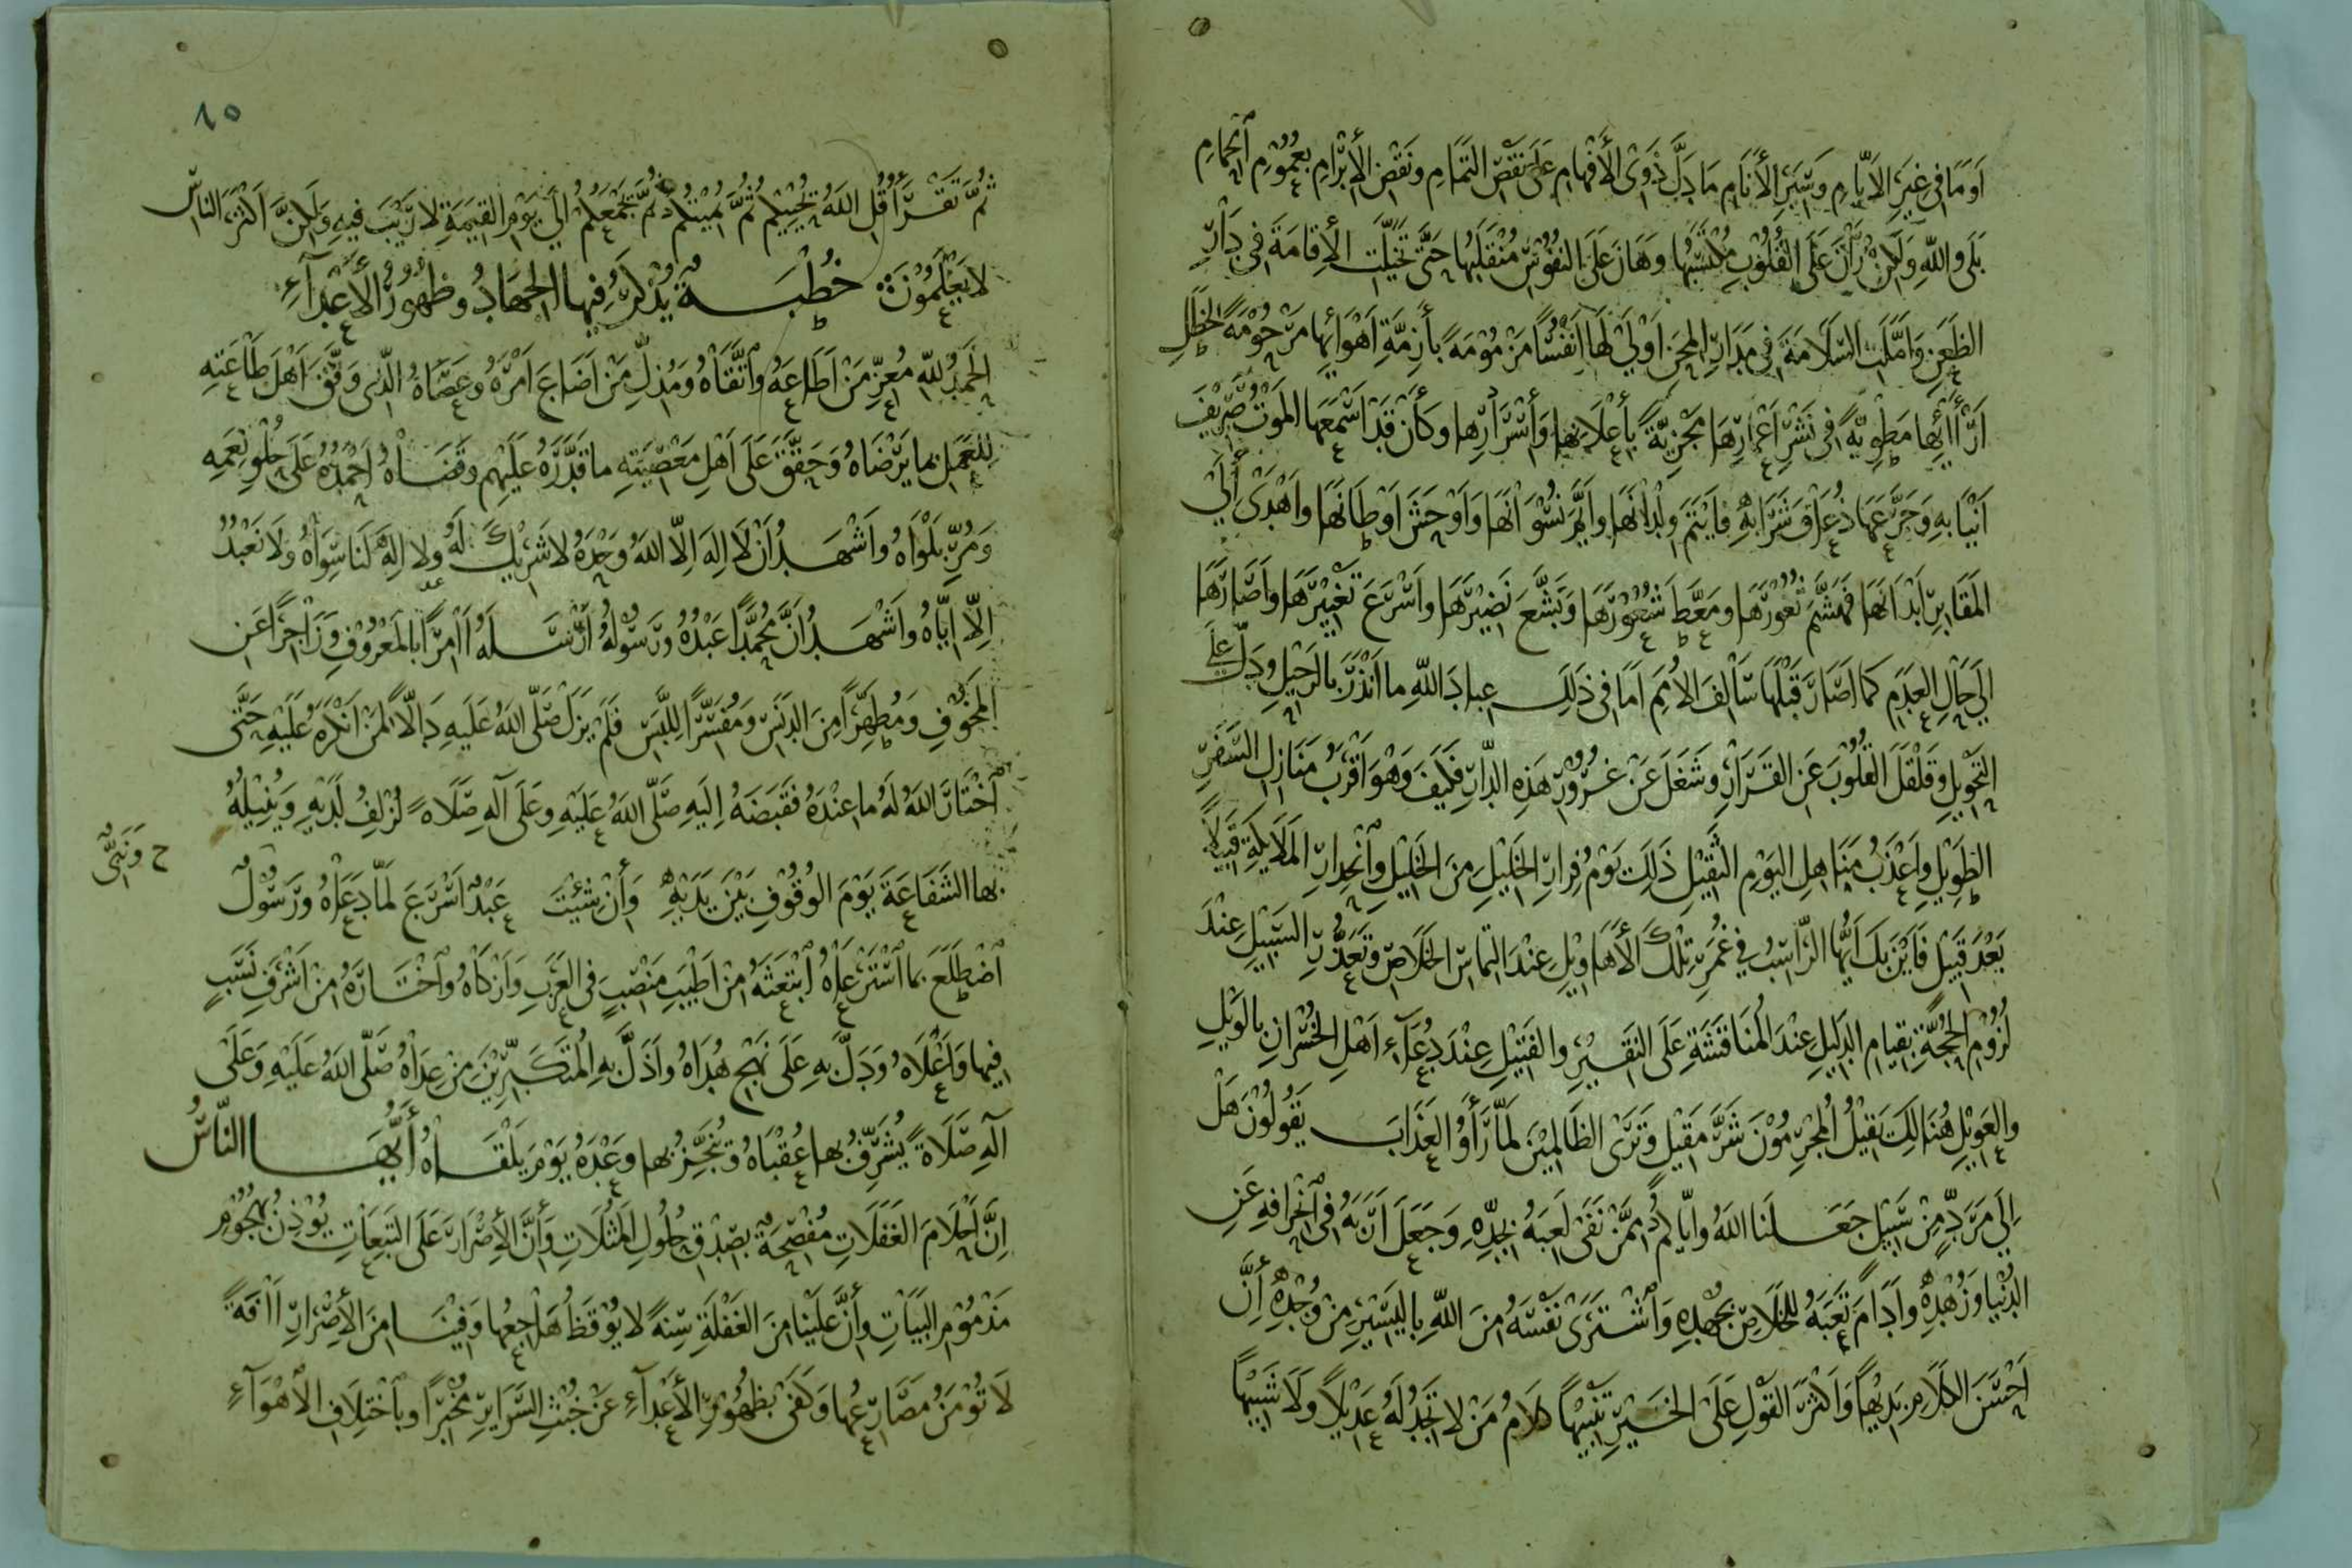 اَوَمَا فِي غِيَرِ الاَيَّامِ وَسَيْرِ الأَنَامِ مَا دَلَّ ذَوِي الأَفْهَامِ عَلَى نَقْصِ التَّمَامِ وَنَقْضِ الأَبْرَامِ بِعُمُوْمِ الحِمَامِ
بَلَى وَاللهِ وَلَكِنْ رَانَ عَلَى القُلُوْبِ مُكْتَسَبُهَا وَهَانَ عَلَى النُفُوْسِ مُنْقَلَبُهَا حَتَّى تَخَيَّلَتِ الأِقَامَةَ فِي دَارِ
الظَعَنِ وَامَّلَتِ السَّلَامَةَ فِي مَدَارِ المِحَنِ اَوْلَى لَهَا اَنْفُسًا مَزْمُوْمَةً بِأَزِمَّةِ اَهْوَائِهَا مَرْحُوْمَةً لِخَطَلِ
اَرَائِهَا مَطْوِيَّةً فِي نَشْرِ اَعْمَارِهَا مَجْزِيَّةً بِأَعْلَانِهَا وَأَسْرَارِهَا وَكَأَنْ قَدْ اَسْمَعَهَا المَوْتُ صَرِيْفَ
اَنْيَابِهِ وَجَرَّعَهَا ذُعَاقَ شَرَابِهِ فَايْتَمَ وِلْدَانَهَا وَاَيَّمَ نِسْوَانَهَا وَاَوْحَشَ اَوْطَانَهَا وَاَهْدَى اِلَى
المَقَابِرِ اَبْدَانَهَا فَهَشَّمَ ثُغُوْرَهَا وَمَعَّطَ شُعُوْرَهَا وَبَشَّعَ نَضِيْرَهَا وَاَسْرَعَ تَغْيِيْرَهَا وَاَصَارَهَا
اِلَى حَالِ العَدَمِ كَمَا اَصَارَ قَبْلَهَا سَالِفَ الاُمَمِ اَمَا فِي ذَلِكَ عِبَادَ اللهِ مَا اَنْذَرَ بِالرَحِيْلِ وَدَلَّ عَلَى
التَحْوِيْلِ وَقَلْقَلَ القُلُوْبَ عَنِ القَرَارِ وَشَغَلَ عَنْ غُرُوْرِ هَذِهِ الدَّارِ فَكَيْفَ وَهْوَ اَقْرَبُ مَنَازِلِ السَّفَرِ
الطَوِيْلِ وَاَعْذَبُ مَنَاهِلِ اليَوْمِ الثَقِيْلِ ذَلِكَ يَوْمُ فِرَارِ الخَلِيْلِ مِنَ الخَلِيْلِ وَاَنْحِدَارِ المَلَايِكَةِ قَبِيْلًا
بَعْدَ قَبِيْلٍ فَاَيْنَ بِكَ اَيُّهَا الرَاسِبُ فِي غَمْرِ تِلْكَ الأَهَاوِيْلِ عِنْدَ التِمَاسِ الخَلَاصِ وَتَعَذُّرِ السَبِيْلِ عِنْدَ
لُزُوْمِ الحُجَّةِ بِقِيَامِ الدَلِيْلِ عِنْدَ المُنَاقَشَةِ عَلَى النَقِيْرِ وَالفَتِيْلِ عِنْدَ دُعَآءِ اَهْلِ الخُسْرَانِ بِالوَيْلِ
وَالعَوِيْلِ هُنَالِكَ يَقِيْلُ المُجْرِمُوْنَ شَرَّ مَقِيْلٍ وَتَرَى الظَالِمِيْنَ لَمَّا رَأَوُ العَذَابَ يَقُولُوْنَ هَلْ
اِلَى مَرَدٍّ مِنْ سَبِيْلٍ جَعَلَنَا اللهُ وَاِيَّاكُمْ مِمَّنْ نَفَى لَعِبَهُ بِجِدِّهِ وَجَعَلَ اَرَبَهُ فِي اَنْحِرَافِهِ عَنِ
الدُنْيَا وَزُهْدِهِ وَاَدَامَ تَعَبَهُ لِلخَلَاصِ بِجُهْدِهِ وَاَشْتَرَى نَفْسَهُ مِنَ اللهِ بِاليَسِيْرِ مِنْ وُجْدِهِ أِنَّ
اَحْسَنَ الكَلَامِ بَدِيْهًا وَاَكْثَرَ القَوْلِ عَلَى الخَيْرِ تَنْبِيْهًا كَلَامُ مَنْ لَا تَجِدُ لَهُ عَدِيْلًا وَلَا شَبِيْهًا
١٥
ثُمَّ تَقْرَأُ قُلِ اللهُ يُحْيِيْكُمْ ثُمَّ يُمِيْتُكُمْ ثُمَّ يَجْمَعُكُمْ اِلَى يَوْمِ القِيَمَةِ لَا رَيْبَ فِيهِ وَلَكِنَّ اَكْثَرَ النَاسِ
لَا يَعْلَمُوْنَ خُطْبَةٌ يُذْكَرُ فِيهَا الجِهَادُ وَظُهُوْرُ الأَعْدَآءِ
الحَمْدُ للهِ مُعِزِّ مَنْ اَطَاعَهُ وَاَتَّقَاهُ وَمُذِلِّ مَنْ اَضَاعَ اَمْرَهُ وَعَصَاهُ الَّذِى وَفَّقَ اَهْلَ طَاعَتِهِ
لِلعَمَلِ بِمَا يَرْضَاهُ وَحَقَّقَ عَلَى اَهْلِ مَعْصِيَتِهِ مَا قَدَّرَهُ عَلَيْهِمْ وَقَضَاهُ اَحْمَدُهُ عَلَى حُلْوِ نِعَمِهِ
وَمُرِّ بَلْوَاهُ وَاَشْهَدُ اَنْ لَا اِلَهَ اِلَّا اللهُ وَحْدَهُ لَا شَرِيْكَ لَهُ وَلَا اِلَهَ لَنَا سِوَاهُ وَلَا نَعْبُدُ
اِلَّا اِيَّاهُ وَاَشْهَدُ اَنَّ مُحَمَّدًا عَبْدُهُ وَرَسُوْلُهُ اَرْسَلَهُ اَامِرًا بِالمَعْرُوْفِ وَزَاجِرًا عَنِ
المَخُوْفِ وَمُطَهِّرًا مِنَ الدَنَسِ وَمُفَسِّرًا لِلَّبَسِ فَلَمْ يَزَلْ صَلَّى اللهُ عَلَيهِ دَالًّا لِمَنْ اَنْكَرَهُ عَلَيْهِ حَتَّى
اَخْتَارَ اللهُ لَهُ مَا عِنْدَهُ فَقَبَضَهُ اِلَيْهِ صَلَّى اللهُ عَلَيْهِ وَعَلَى آلِهِ صَلَاةً تُزْلِفُ لَدَيْهِ وَيُنِيْلُهُ
بِهَا الشَفَاعَةَ يَوْمَ الوُقُوْفِ بَيْنَ يَدَيْهِ وَأِنْ شِئْتَ عَبْدٌ اَسْرَعَ لَمَّا دَعَاهُ وَرَسُوْلٌ
ح وَنَبِيٌّ
اَضْطَلَعَ بِمَا اَسْتَرْعَاهُ اَبْتَعَثَهُ مِنْ اَطْيَبِ مَنْصِبٍ فِي العَرَبِ وَاَزْكَاهُ وَاَخْتَارَهُ مِنْ اَشْرَفِ نَسَبٍ
فِيهَا وَاَعْلَاهُ وَدَلَّ بِهِ عَلَى نَهْجِ هُدَاهُ وَاَذَلَّ بِهِ المُتَكَبِّرِيْنَ مِنْ عِدَاهُ صَلَّى اللهُ عَلَيْهِ وَعَلَى
آلِهِ صَلَاةً يُشَرِّفُ بِهَا عُقْبَاهُ وَيُنْجِزُ بِهَا وَعْدَهُ يَوْمَ يَلْقَاهُ أَيُّهَا النَّاسُ
اِنَّ اَحْلَامَ الغَفَلَاتِ مُفْصِحَةٌ بِصِدْقِ حُلُولِ المَثُلَاتِ وَأِنَّ الأِصْرَارَ عَلَى التَبِعَاتِ يُوْذِنُ بِهُجُوْمِ
مَذْمُوْمِ البَيَاتِ وَأِنَّ عَلَيْنَا مِنَ الغَفْلَةِ سِنَةً لَا يُوْقَظُ هَاجِعُهَا وَفِيْنَا مِنَ الأِصْرَارِ اَافَةً
لَا تُوْمَنُ مَصَارِعُهَا وَكَفَى بِظُهُوْرِ الأَعْدَآءِ عَنْ خُبْثِ السَّرَايِرِ مُخْبِرًا وَبِاَخْتِلَافِ الأَهْوَآءِ